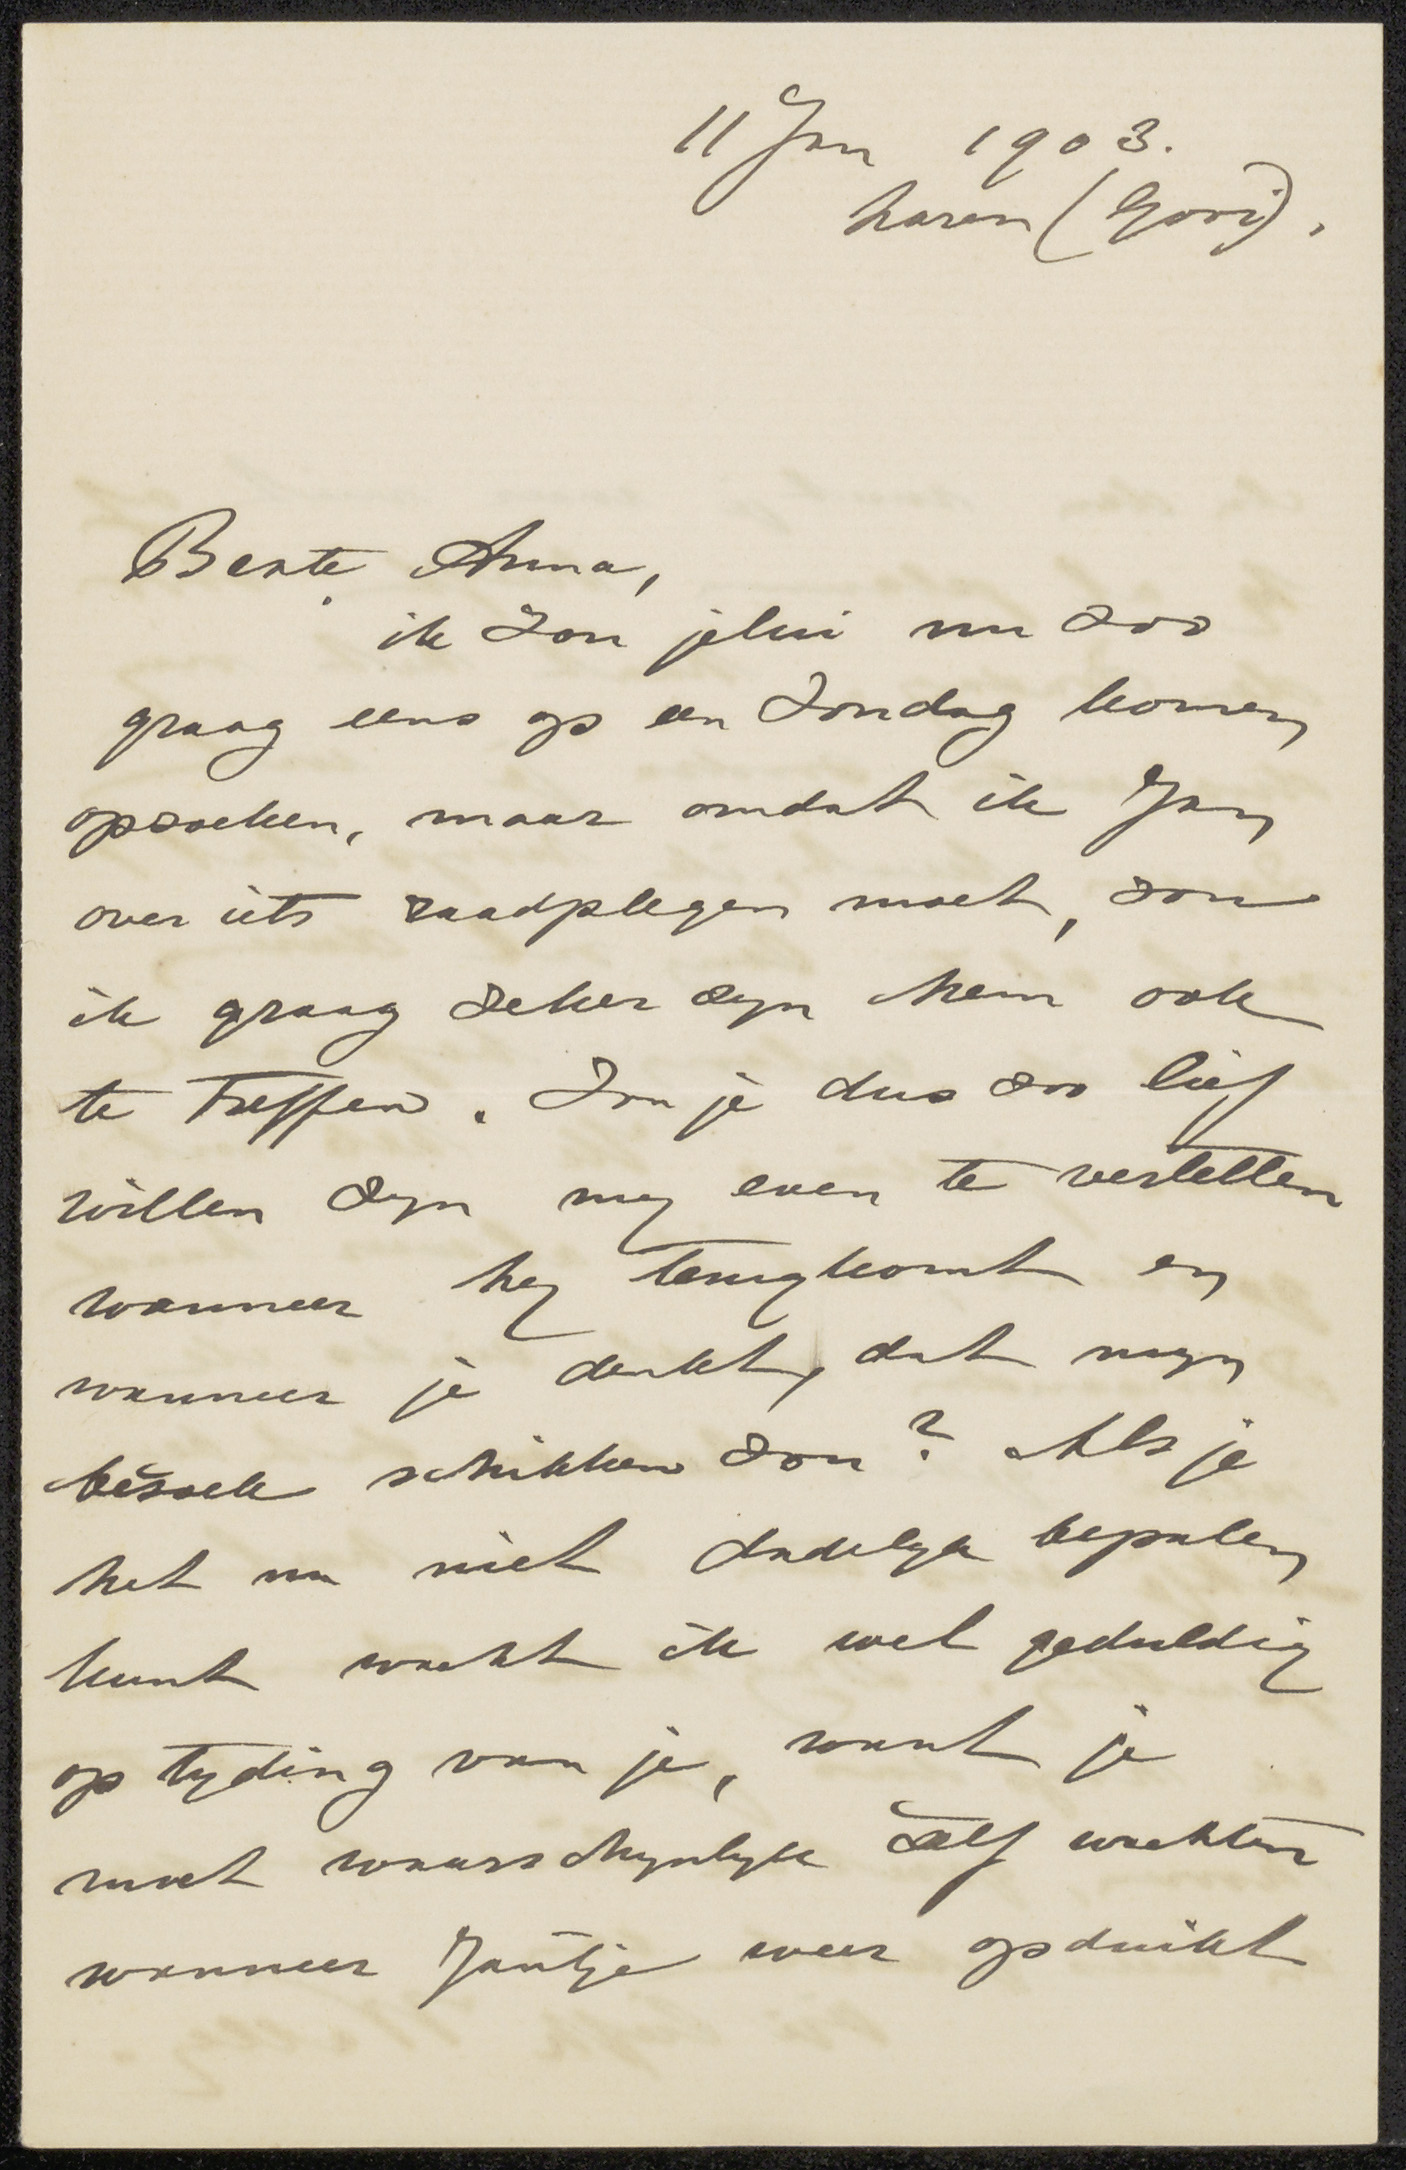 11 Jan 1903.
Laren (Gooi).
Beste Anna,
ik zou jelui nu zoo
graag eens op een Zondag komen
opzoeken, maar omdat ik Jan
over iets raadplegen moet, zou
ik graag zeker zyn hem ook
te treffen. Zou je dus zoo lief
willen zyn my even te vertellen
wanneer hy terugkomt en
wanneer je denkt, dat myn
bezoek schikken zou? Als je
het nu niet dadelyk bepalen
kunt wacht ik wel geduldig
op tyding van je, want je
moet waarschynlyk zelf wachten
wanneer Jantje weer opduikt